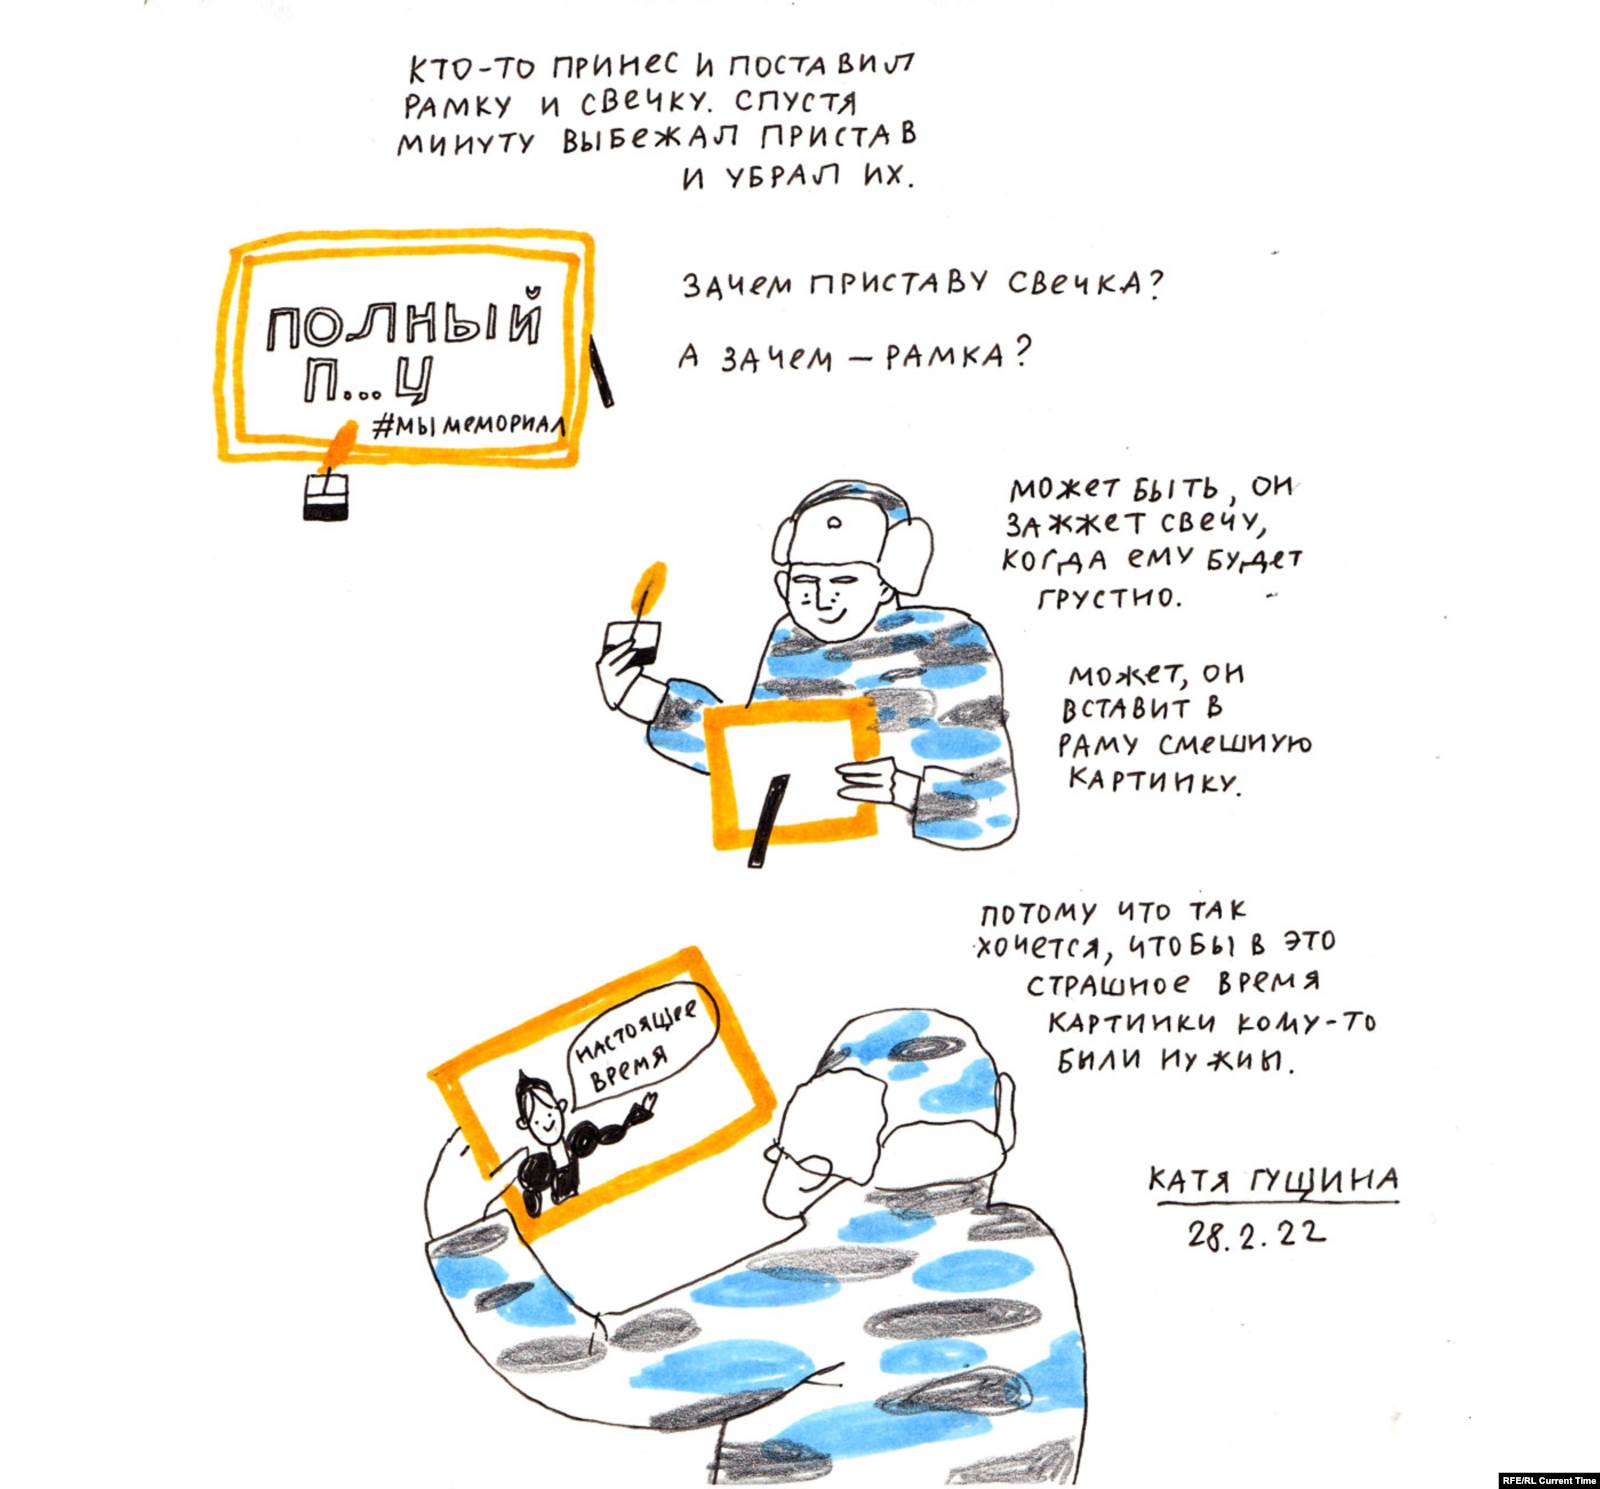 КТО-ТО ПРИНЕС И ПОСТАВИЛ
РАМКУ И СВЕЧКУ. СПУСТЯ
МИНУТУ ВЫБЕЖАЛ ПРИСТАВ
И УБРАЛ ИХ.
ПОЛНЫЙ
П...Ц
#МЫМЕМОРИАЛ
ЗАЧЕМ ПРИСТАВУ СВЕЧКА?
А ЗАЧЕМ – РАМКА?
МОЖЕТ БЫТЬ, ОН
ЗАЖЖЕТ СВЕЧУ,
КОГДА ЕМУ БУДЕТ
ГРУСТНО.
МОЖЕТ, ОН
ВСТАВИТ В
РАМУ СМЕШНУЮ
КАРТИНКУ.
ПОТОМУ ЧТО ТАК
ХОЧЕТСЯ, ЧТОБЫ В ЭТО
СТРАШНОЕ ВРЕМЯ
КАРТИНКИ КОМУ-ТО
БЫЛИ НУЖНЫ.
НАСТОЯЩЕЕ
ВРЕМЯ
КАТЯ ГУЩИНА
28.2.22
RFE/RL Current Time